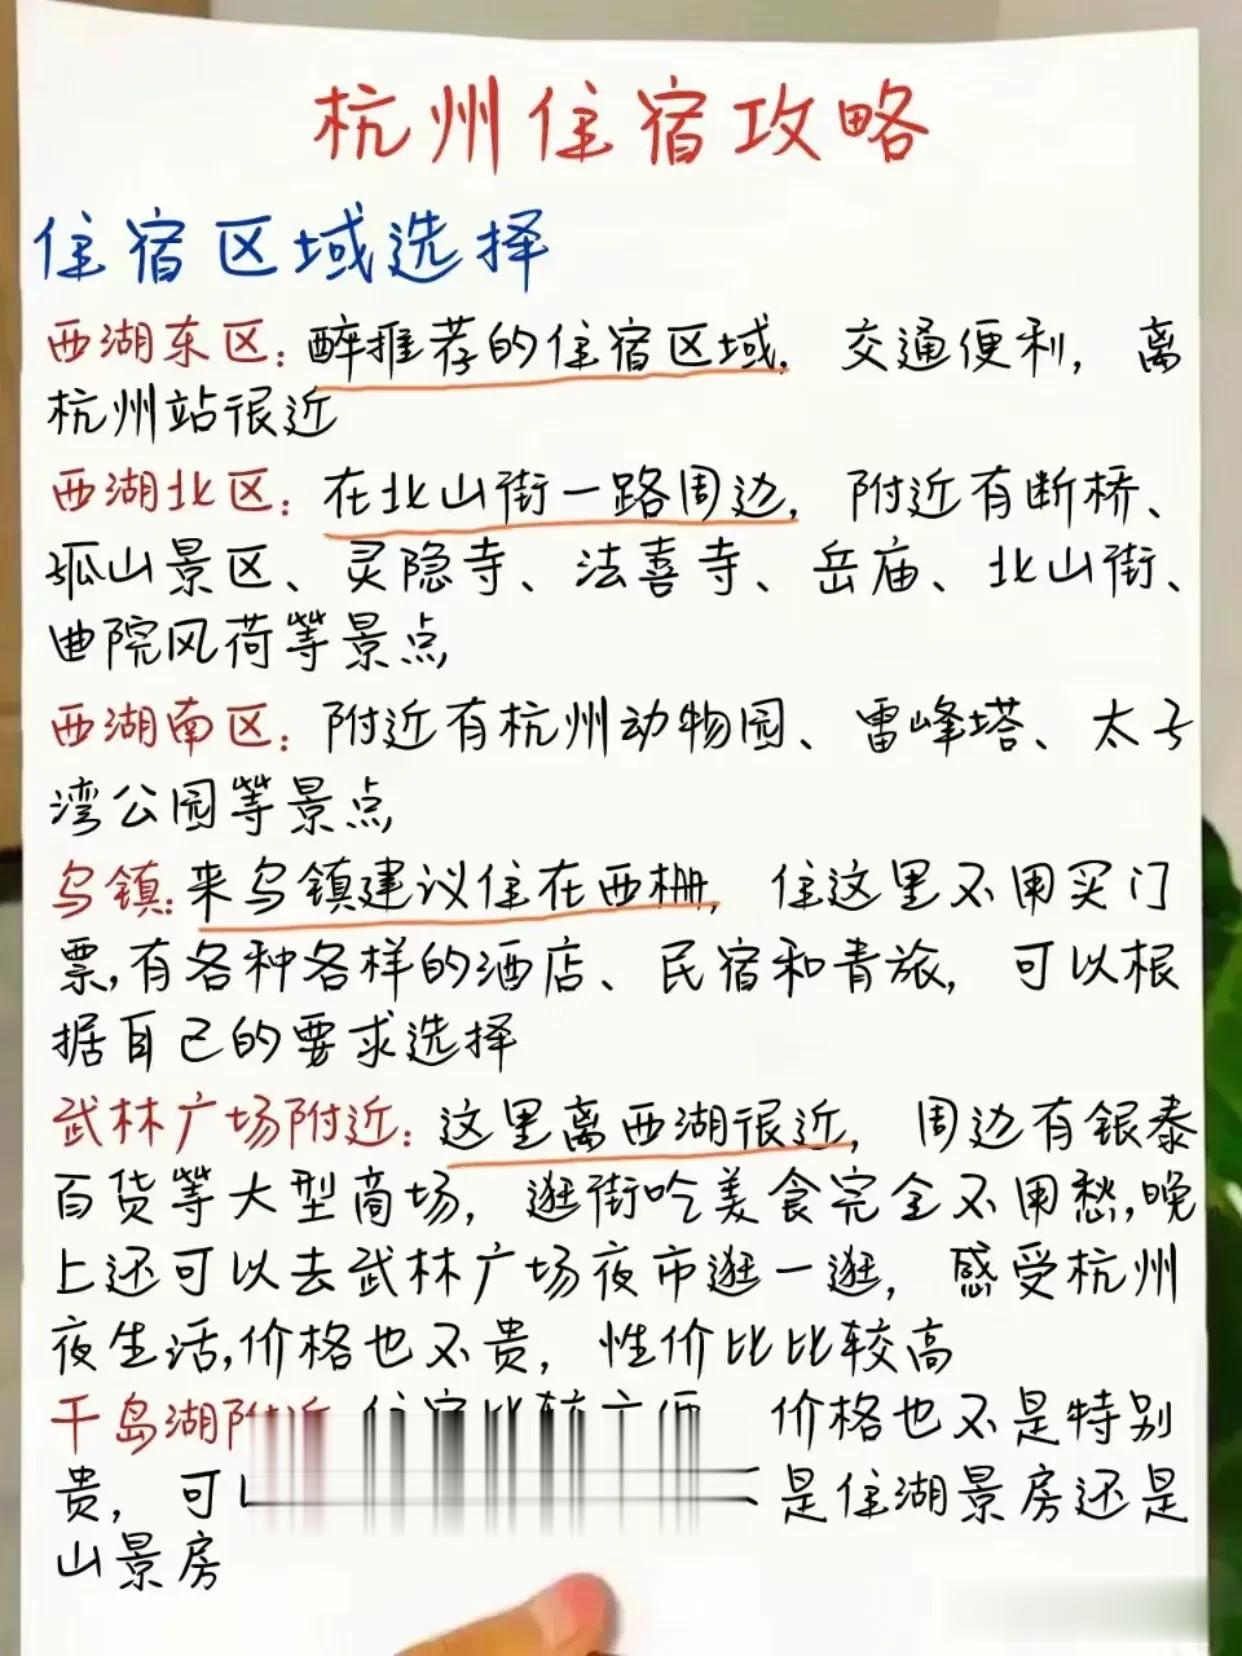 杭州住宿攻略
住宿区域选择
西湖东区：醉推荐的住宿区域，交通便利，离
杭州站很近
西湖北区：在北山街一路周边，附近有断桥、
孤山景区、灵隐寺、法喜寺、岳庙、北山街、
曲院风荷等景点
西湖南区：附近有杭州动物园、雷峰塔、太子
湾公园等景点
乌镇：来乌镇建议住在西栅，住这里不用买门
票，有各种各样的酒店、民宿和青旅，可以根
据自己的要求选择
武林广场附近：这里离西湖很近，周边有银泰
百货等大型商场，逛街吃美食完全不用愁，晚
上还可以去武林广场夜市逛一逛，感受杭州
夜生活，价格也不贵，性价比比较高
千岛湖附近 价格也不是特别
贵，可 是住湖景房还是
山景房